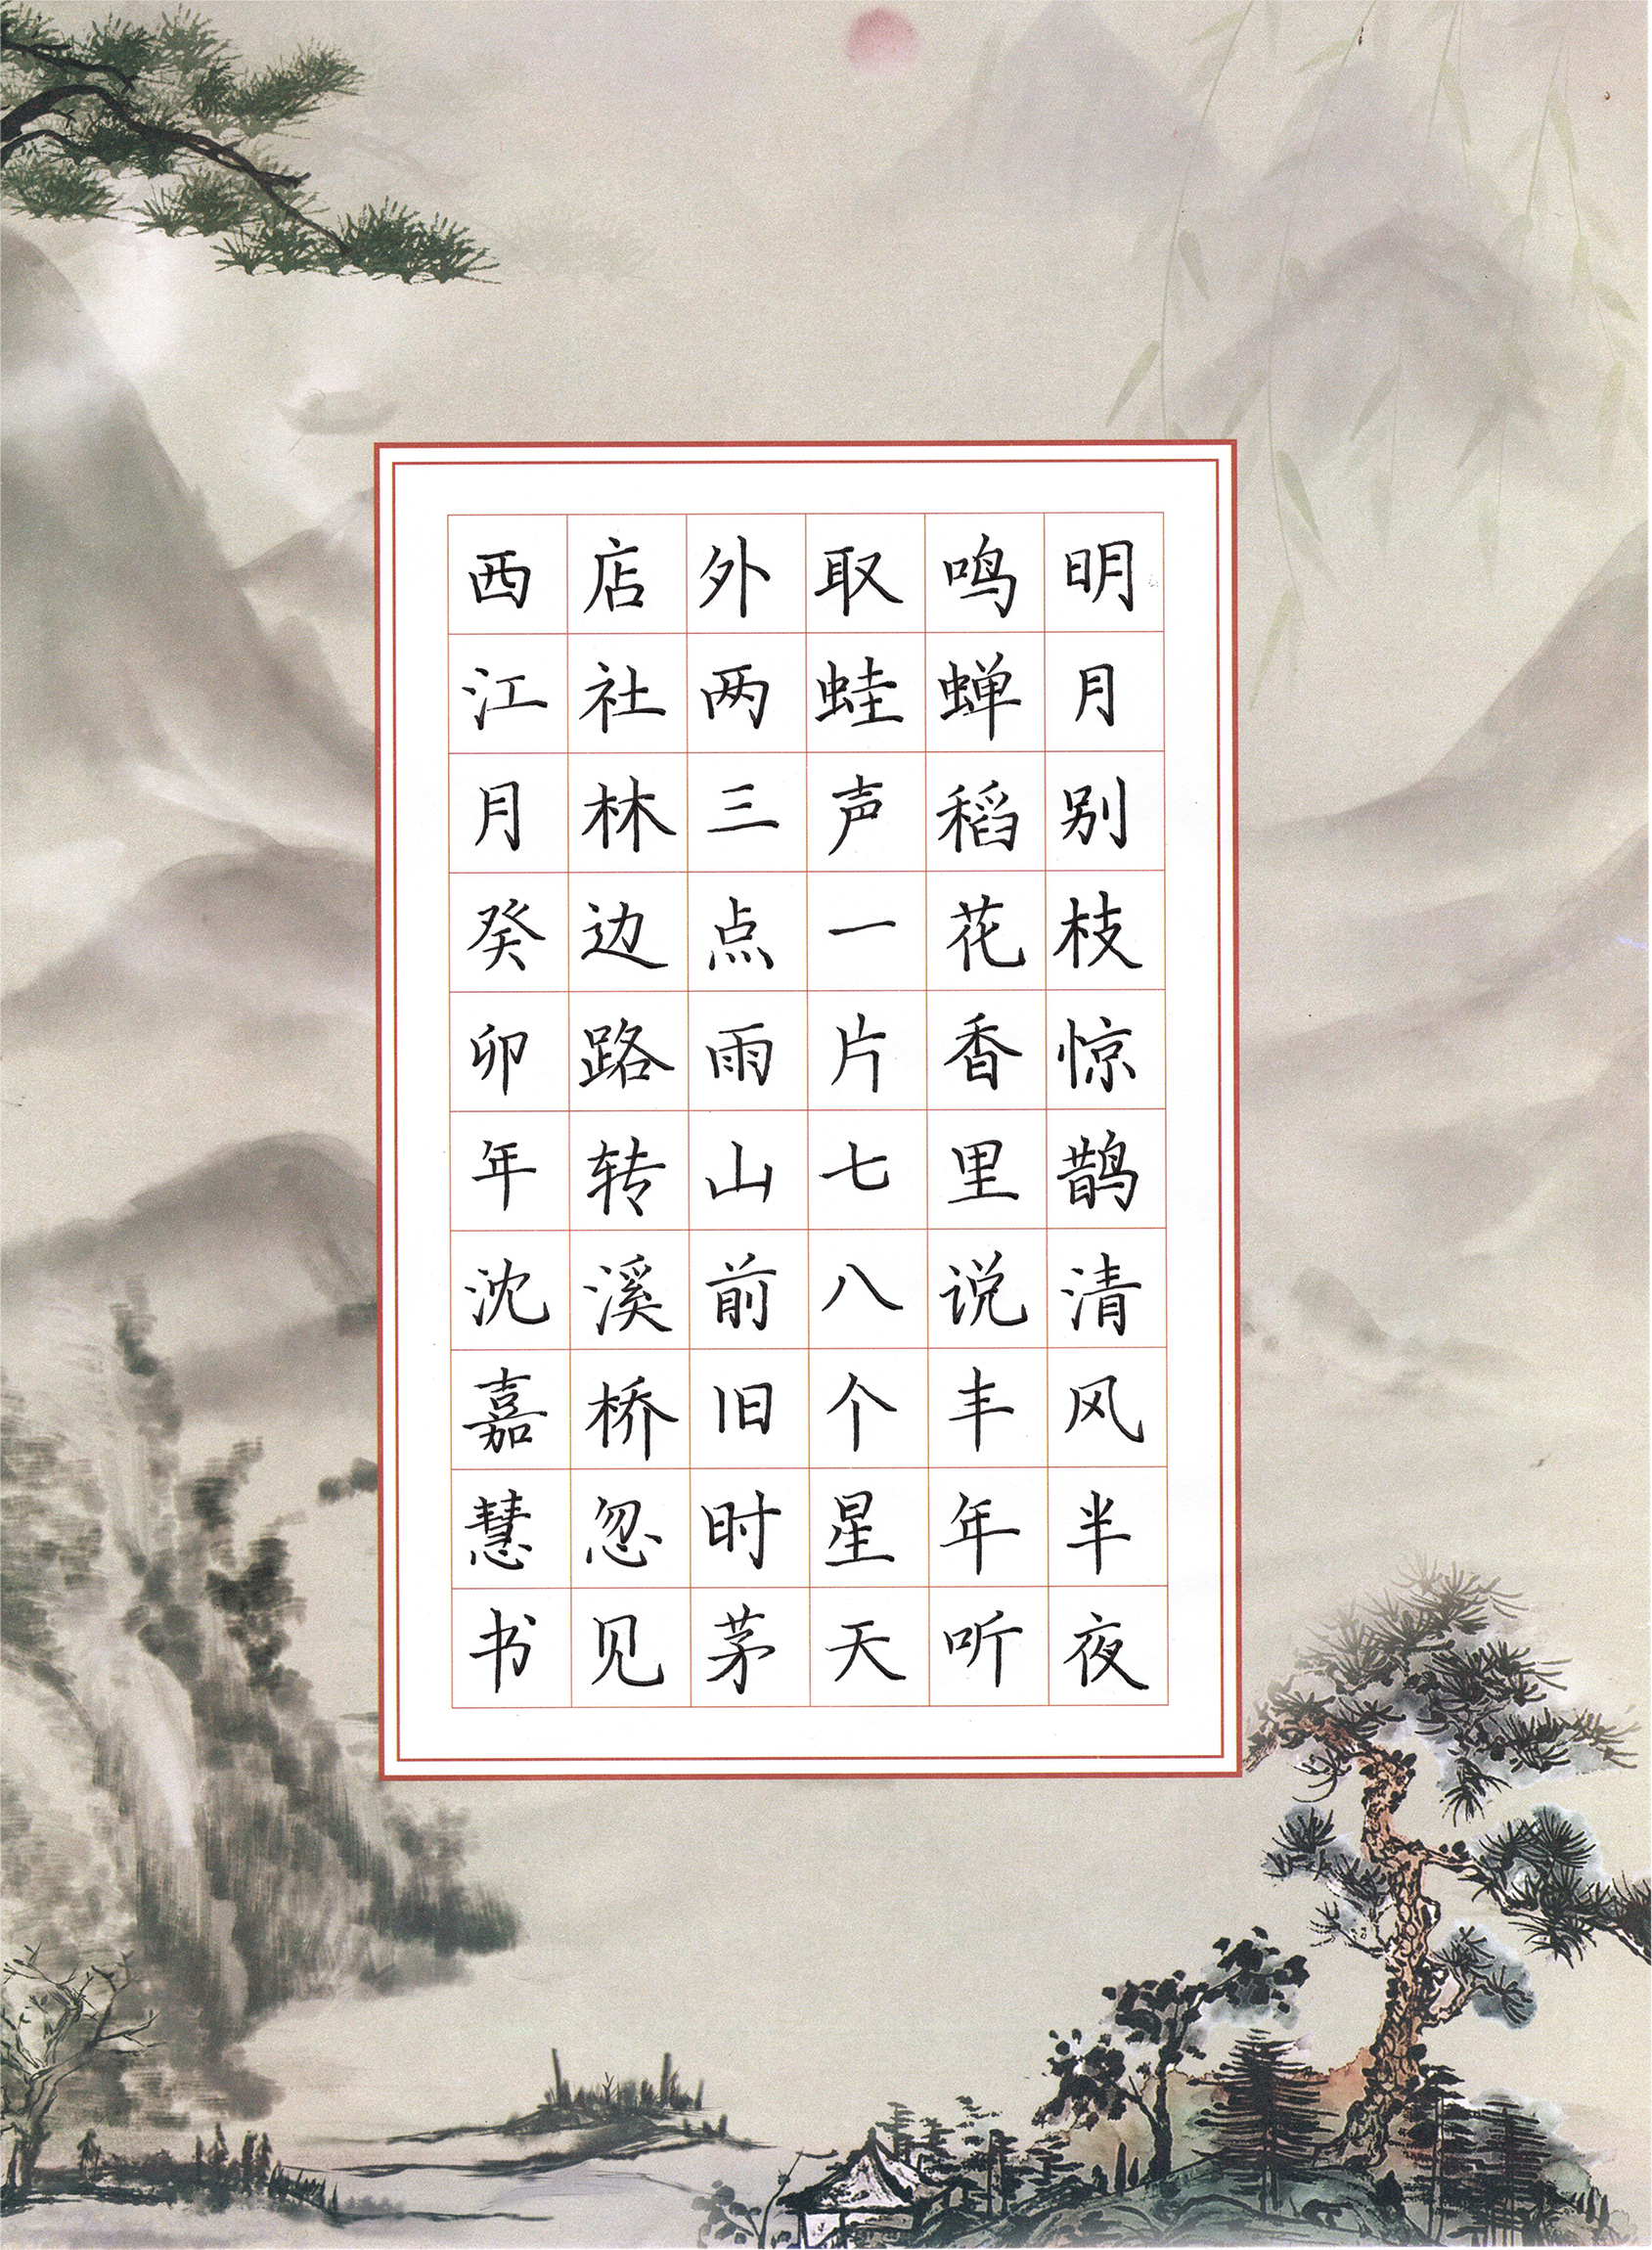 明月别枝惊鹊清风半夜
鸣蝉稻花香里说丰年听
取蛙声一片七八个星天
外两三点雨山前旧时茅
店社林边路转溪桥忽见
西江月癸卯年沈嘉慧书